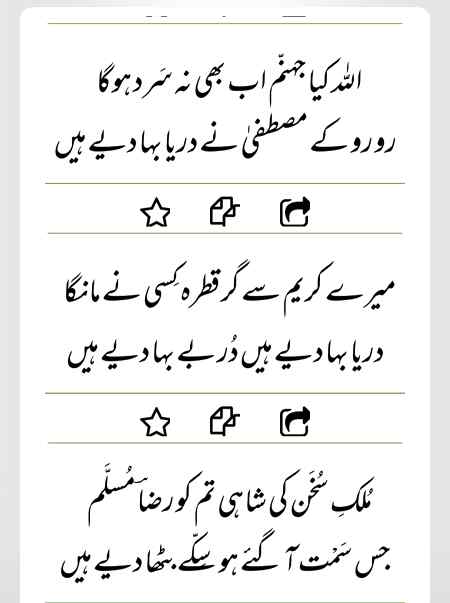 اللہ کیا جہنّم اب بھی نہ سَرد ہوگا
رو رو کے مصطفیٰ نے دریا بہا دیے ہیں
میرے کریم سے گر قطرہ کِسی نے مانگا
دریا بہا دیے ہیں دُر بے بہا دیے ہیں
مُلکِ سُخَن کی شاہی تم کو رضاؔ مُسلَّم
جس سَمْت آ گئے ہو سکّے بٹھا دیے ہیں